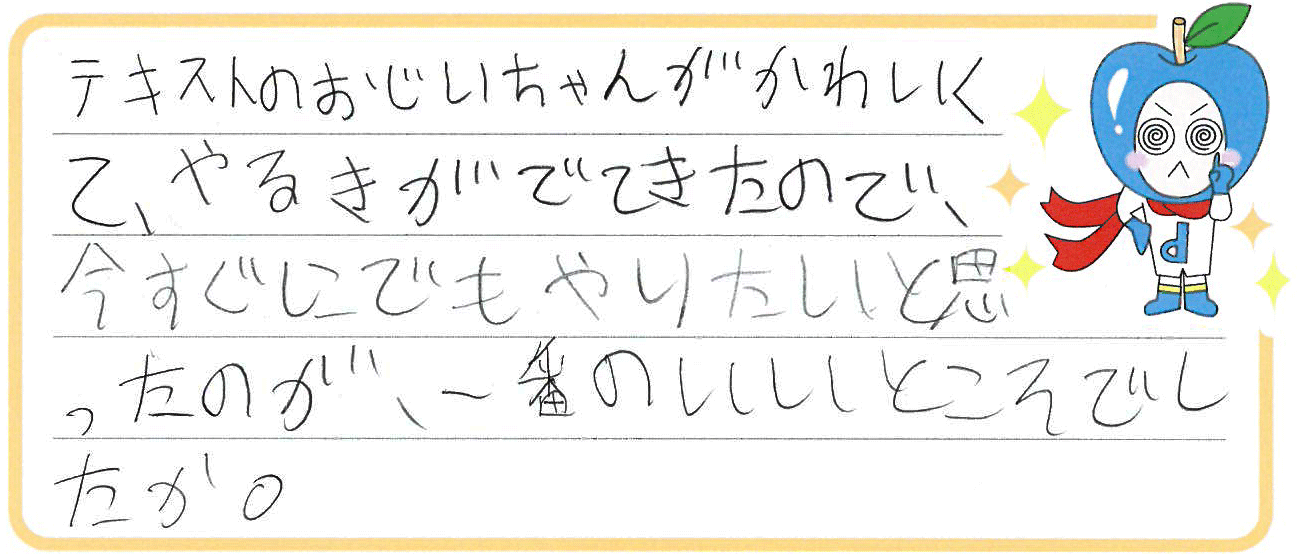 テキストのおじいちゃんがかわいく
て、やるきがでてきたので、
今すぐにでもやりたいと思
ったのが、一番のいいところでし
たか。
d